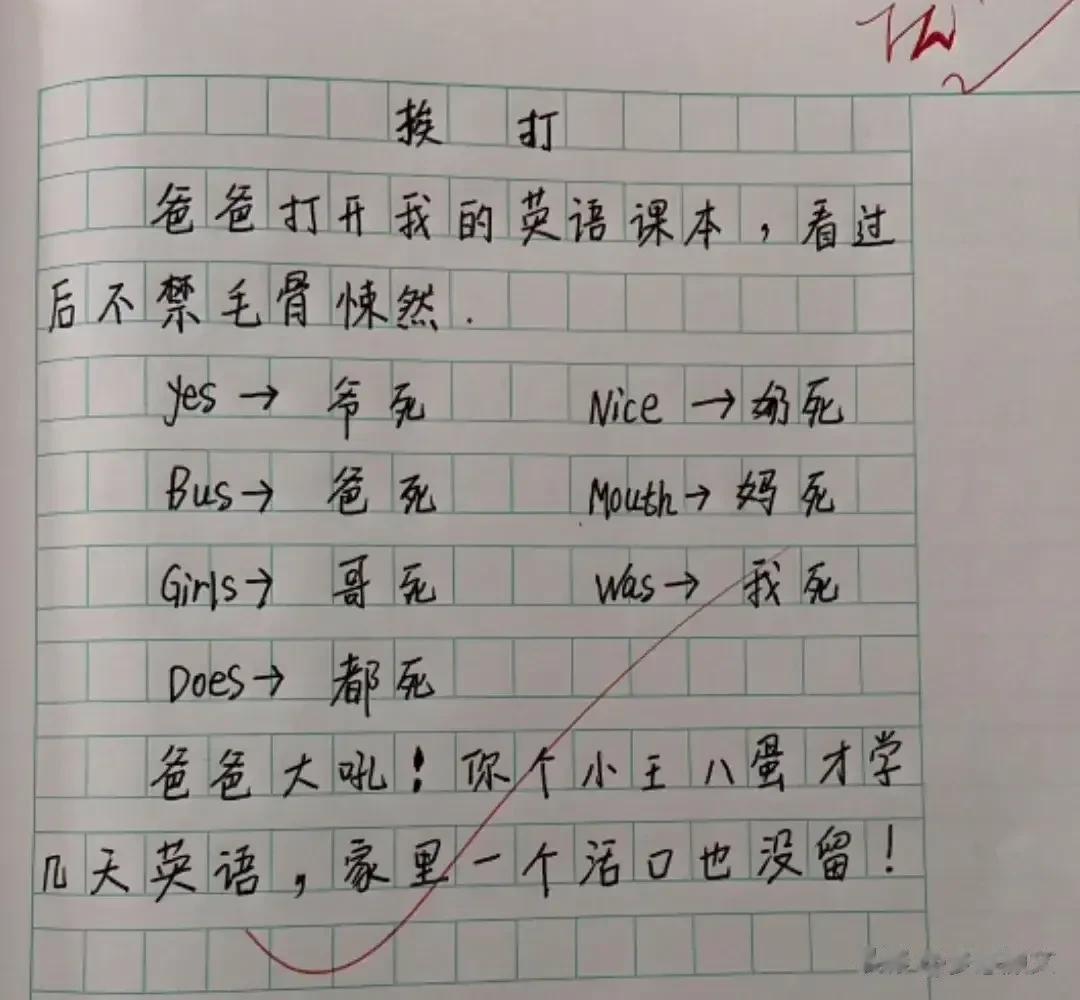 挨打
爸爸打开我的英语课本，看过
后不禁毛骨悚然.
yes → 爷死 Nice → 奶死
Bus → 爸死 Mouth → 妈死
Girls → 哥死 was → 我死
Does → 都死
爸爸大吼！你个小王八蛋才学
几天英语，家里一个活口也没留！